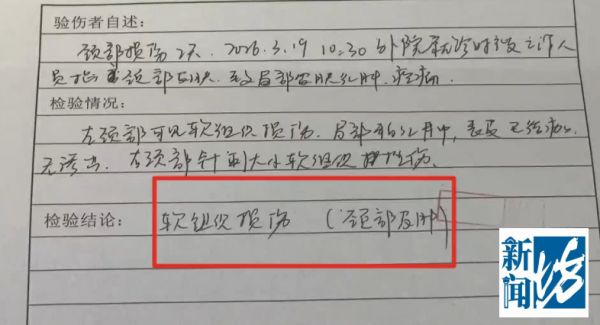 验伤者自述:
颈部损伤2天. 2026.3.19 10:30 外院就诊时被工作人
员 颈部 致局部皮肤红肿. 疼痛.
检验情况:
左颈部可见软组织损伤. 局部有红肿, 表皮已结痂.
无渗出. 左颈部针刺大小软组织 伤.
检验结论: 软组织损伤 (颈部皮肤)
新闻坊